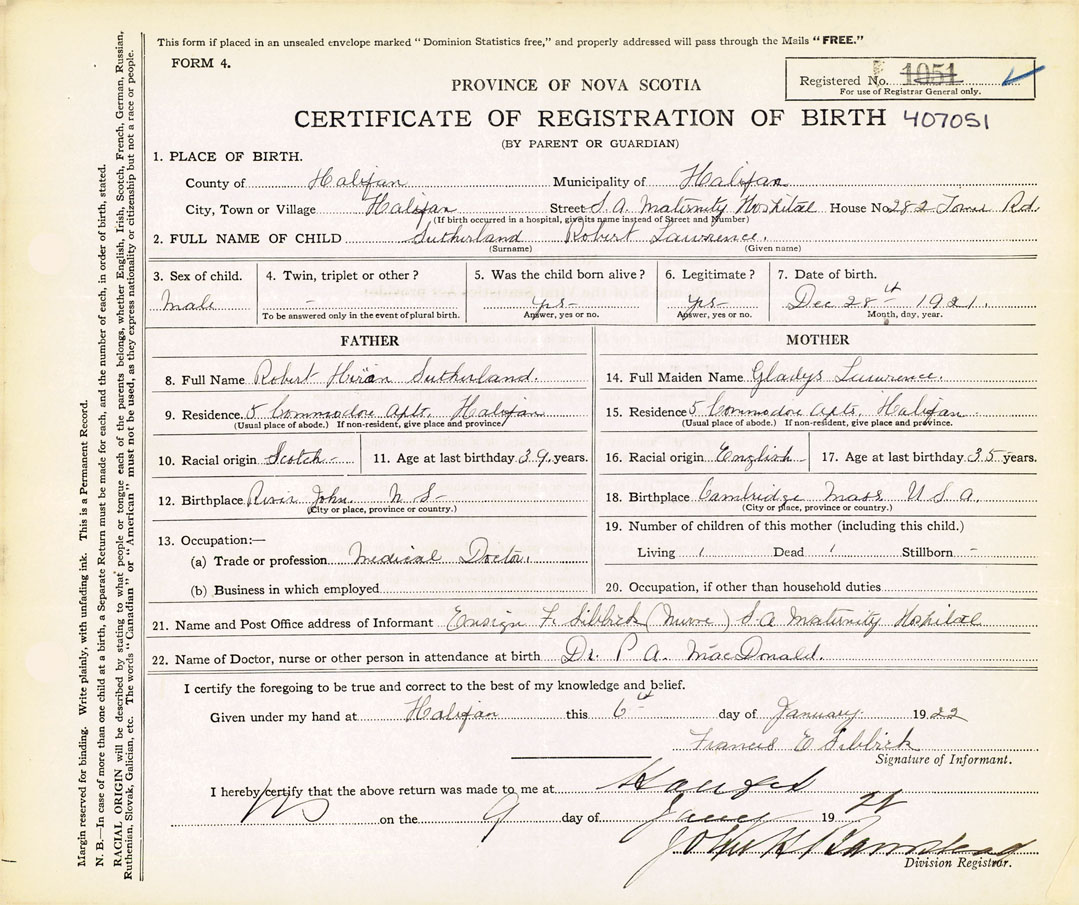 This form if placed in an unsealed envelope marked "Dominion Statistics free," and properly addressed will pass through the Mails "FREE."
FORM 4.
Registered No. 1051
For use of Registrar General only.
PROVINCE OF NOVA SCOTIA
CERTIFICATE OF REGISTRATION OF BIRTH 407051
(BY PARENT OR GUARDIAN)
1. PLACE OF BIRTH.
County of Halifax Municipality of Halifax
City, Town or Village Halifax Street S. A. Maternity Hospital House No. 282 Tower Rd.
(If birth occurred in a hospital, give its name instead of Street and Number)
2. FULL NAME OF CHILD Sutherland Robert Lawrence.
(Surname) (Given name)
3. Sex of child. 4. Twin, triplet or other? 5. Was the child born alive? 6. Legitimate? 7. Date of birth.
Male - yes- yes- Dec 28th 1921.
To be answered only in the event of plural birth. Answer, yes or no. Answer, yes or no. Month, day, year.
FATHER MOTHER
8. Full Name Robert Hiram Sutherland. 14. Full Maiden Name Gladys Lawrence.
9. Residence. 5 Commodore Apts. Halifax 15. Residence 5 Commodore Apts. Halifax
(Usual place of abode.) If non-resident, give place and province. (Usual place of abode.) If non-resident, give place and province.
10. Racial origin Scotch- 11. Age at last birthday 39. years. 16. Racial origin English- 17. Age at last birthday 35 years.
12. Birthplace River John. N S- 18. Birthplace Cambridge Mass U S A.
(City or place, province or country.) (City or place, province or country.)
13. Occupation:— 19. Number of children of this mother (including this child.)
(a) Trade or profession Medical Doctor. Living 1 Dead 1 Stillborn -
(b) Business in which employed 20. Occupation, if other than household duties
21. Name and Post Office address of Informant Ensign F. Sibbick (Nurse) S. A Maternity Hospital
22. Name of Doctor, nurse or other person in attendance at birth Dr. P A. MacDonald.
I certify the foregoing to be true and correct to the best of my knowledge and belief.
Given under my hand at Halifax this 6th day of January 1922
Francis E Sibbick
Signature of Informant.
I hereby certify that the above return was made to me at Halifax
NS on the 9 day of Jany 19 22
Division Registrar.
Margin reserved for binding. Write plainly, with unfading ink. This is a Permanent Record.
N. B.—In case of more than one child at a birth, a Separate Return must be made for each, and the number of each, in order of birth, stated.
RACIAL ORIGIN will be described by stating to what people or tongue each of the parents belongs, whether English, Irish, Scotch, French, German, Russian,
Ruthenian, Slovak, Galician, etc. The words "Canadian" or "American" must not be used, as they express nationality or citizenship but not a race or people.